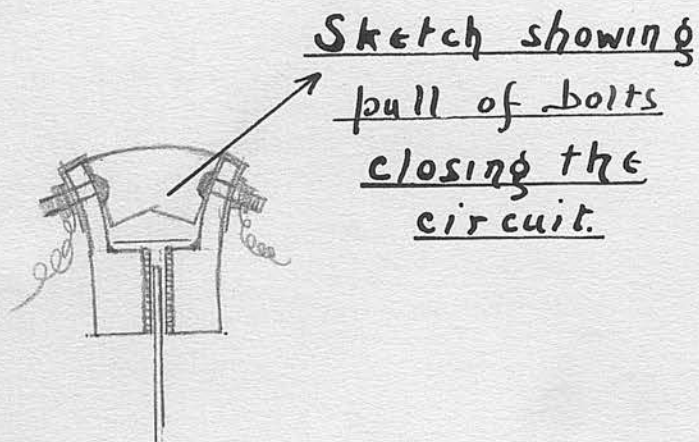 Sketch showing
pull of bolts
closing the
circuit.